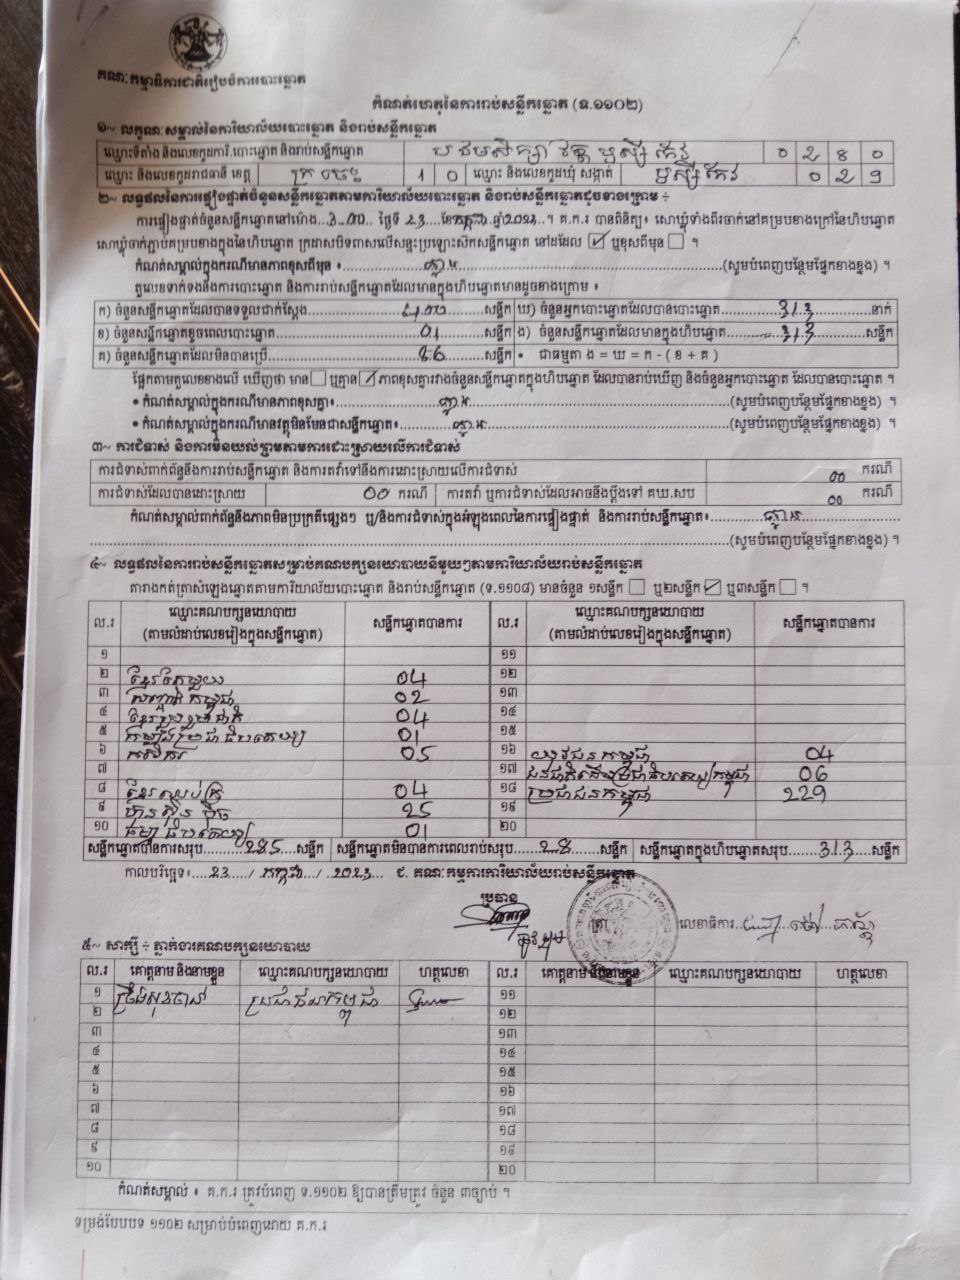 គណៈកម្មាធិការជាតិរៀបចំការបោះឆ្នោត
កំណត់ហេតុនៃការរាប់សន្លឹកឆ្នោត (ទ.១១០២)
១~ លក្ខណៈសម្គាល់នៃការិយាល័យបោះឆ្នោត និងរាប់សន្លឹកឆ្នោត
ឈ្មោះទីតាំង និងលេខកូដការិ.បោះឆ្នោត និងរាប់សន្លឹកឆ្នោត បឋមសិក្សា វត្ត ឫស្សី កែវ 0 2 8 0
ឈ្មោះ និងលេខកូដរាជធានី ខេត្ត ក្រចេះ 1 0 ឈ្មោះ និងលេខកូដឃុំ សង្កាត់ ឫស្សីកែវ 0 2 9
២~ លទ្ធផលនៃការផ្ទៀងផ្ទាត់ចំនួនសន្លឹកឆ្នោតតាមការិយាល័យបោះឆ្នោត និងរាប់សន្លឹកឆ្នោតដូចខាងក្រោម ÷
ការផ្ទៀងផ្ទាត់ចំនួនសន្លឹកឆ្នោតនៅម៉ោង...3.00.. ថ្ងៃទី 23 ខែកក្កដា ឆ្នាំ2023។ គ.ក.រ បានពិនិត្យ៖ សោឃ្លុំទាំងពីរចាក់នៅគម្របខាងក្រៅនៃហិបឆ្នោត
សោឃ្លុំចាក់ភ្ជាប់គម្របខាងក្នុងនៃហិបឆ្នោត ក្រដាសបិទពាសលើសន្ទះប្រឡោះស៊កសន្លឹកឆ្នោត នៅដដែល ☑ ឬខុសពីមុន ☐ ។
កំណត់សម្គាល់ក្នុងករណីមានភាពខុសពីមុន ៖ គ្មាន (សូមបំពេញបន្ថែមផ្នែកខាងខ្នង) ។
តួលេខទាក់ទងនឹងការបោះឆ្នោត និងការរាប់សន្លឹកឆ្នោតដែលមានក្នុងហិបឆ្នោតមានដូចខាងក្រោម ៖
ក) ចំនួនសន្លឹកឆ្នោតដែលបានទទួលជាក់ស្តែង 400 សន្លឹក ឃ) ចំនួនអ្នកបោះឆ្នោតដែលបានបោះឆ្នោត 313 នាក់
ខ) ចំនួនសន្លឹកឆ្នោតខូចពេលបោះឆ្នោត 01 សន្លឹក ង) ចំនួនសន្លឹកឆ្នោតដែលមានក្នុងហិបឆ្នោត 313 សន្លឹក
គ) ចំនួនសន្លឹកឆ្នោតដែលមិនបានប្រើ 86 សន្លឹក • ជាធម្មតា ង = ឃ = ក - ( ខ + គ )
ផ្អែកតាមតួលេខខាងលើ ឃើញថា មាន ☐ ឬគ្មាន ☑ ភាពខុសគ្នារវាងចំនួនសន្លឹកឆ្នោតក្នុងហិបឆ្នោត ដែលបានរាប់ឃើញ និងចំនួនអ្នកបោះឆ្នោត ដែលបានបោះឆ្នោត ។
• កំណត់សម្គាល់ក្នុងករណីមានភាពខុសគ្នា៖ គ្មាន (សូមបំពេញបន្ថែមផ្នែកខាងខ្នង) ។
• កំណត់សម្គាល់ក្នុងករណីមានវត្ថុមិនមែនជាសន្លឹកឆ្នោត៖ គ្មាន (សូមបំពេញបន្ថែមផ្នែកខាងខ្នង) ។
៣~ ការជំទាស់ និងការមិនយល់ព្រមតាមការដោះស្រាយលើការជំទាស់
ការជំទាស់ពាក់ព័ន្ធនឹងការរាប់សន្លឹកឆ្នោត និងការតវ៉ាទៅនឹងការដោះស្រាយលើការជំទាស់ 00 ករណី
ការជំទាស់ដែលបានដោះស្រាយ 00 ករណី ការតវ៉ា ឬការជំទាស់ដែលអាចនឹងប្តឹងទៅ គឃ.សប 00 ករណី
កំណត់សម្គាល់ពាក់ព័ន្ធនឹងភាពមិនប្រក្រតីផ្សេងៗ ឬ/និងការជំទាស់ក្នុងអំឡុងពេលនៃការផ្ទៀងផ្ទាត់ និងការរាប់សន្លឹកឆ្នោត៖ គ្មាន
(សូមបំពេញបន្ថែមផ្នែកខាងខ្នង) ។
៤~ លទ្ធផលនៃការរាប់សន្លឹកឆ្នោតសម្រាប់គណបក្សនយោបាយនីមួយៗតាមការិយាល័យរាប់សន្លឹកឆ្នោត
តារាងកត់ត្រាសំឡេងឆ្នោតតាមការិយាល័យបោះឆ្នោត និងរាប់សន្លឹកឆ្នោត (ទ.១១០៨) មានចំនួន ១សន្លឹក ☐ ឬ២សន្លឹក ☑ ឬ៣សន្លឹក ☐ ។
ល.រ ឈ្មោះគណបក្សនយោបាយ (តាមលំដាប់លេខរៀងក្នុងសន្លឹកឆ្នោត) សន្លឹកឆ្នោតបានការ ល.រ ឈ្មោះគណបក្សនយោបាយ (តាមលំដាប់លេខរៀងក្នុងសន្លឹកឆ្នោត) សន្លឹកឆ្នោតបានការ
១ ១១
២ ខ្មែរតែមួយ 04 ១២
៣ សញ្ជាតិកម្ពុជា 02 ១៣
៤ ខ្មែររួបរួមជាតិ 04 ១៤
៥ កម្លាំងប្រជាធិបតេយ្យ 01 ១៥
៦ កសិករ 05 ១៦ យុវជនកម្ពុជា 04
៧ ១៧ ជនជាតិដើមប្រជាធិបតេយ្យកម្ពុជា 06
៨ ខ្មែរឈប់ក្រ 04 ១៨ ប្រជាជនកម្ពុជា 229
៩ ហ៊្វុនស៊ិនប៉ិច 25 ១៩
១០ ធម្មាធិបតេយ្យ 01 ២០
សន្លឹកឆ្នោតបានការសរុប 285 សន្លឹក សន្លឹកឆ្នោតមិនបានការពេលរាប់សរុប 28 សន្លឹក សន្លឹកឆ្នោតក្នុងហិបឆ្នោតសរុប 313 សន្លឹក
កាលបរិច្ឆេទ៖ 23 / កក្កដា / 2023 ជ. គណៈកម្មការការិយាល័យរាប់សន្លឹកឆ្នោត
ប្រធាន
លេខាធិការ
៥~ សាក្សី ÷ ភ្នាក់ងារគណបក្សនយោបាយ
ល.រ គោត្តនាម និងនាមខ្លួន ឈ្មោះគណបក្សនយោបាយ ហត្ថលេខា ល.រ គោត្តនាម និងនាមខ្លួន ឈ្មោះគណបក្សនយោបាយ ហត្ថលេខា
១ ប្រជាជនកម្ពុជា ១១
២ ១២
៣ ១៣
៤ ១៤
៥ ១៥
៦ ១៦
៧ ១៧
៨ ១៨
៩ ១៩
១០ ២០
កំណត់សម្គាល់ ៖ គ.ក.រ ត្រូវបំពេញ ទ.១១០២ ឱ្យបានត្រឹមត្រូវ ចំនួន ៣ច្បាប់ ។
ទម្រង់បែបបទ ១១០២ សម្រាប់បំពេញដោយ គ.ក.រ